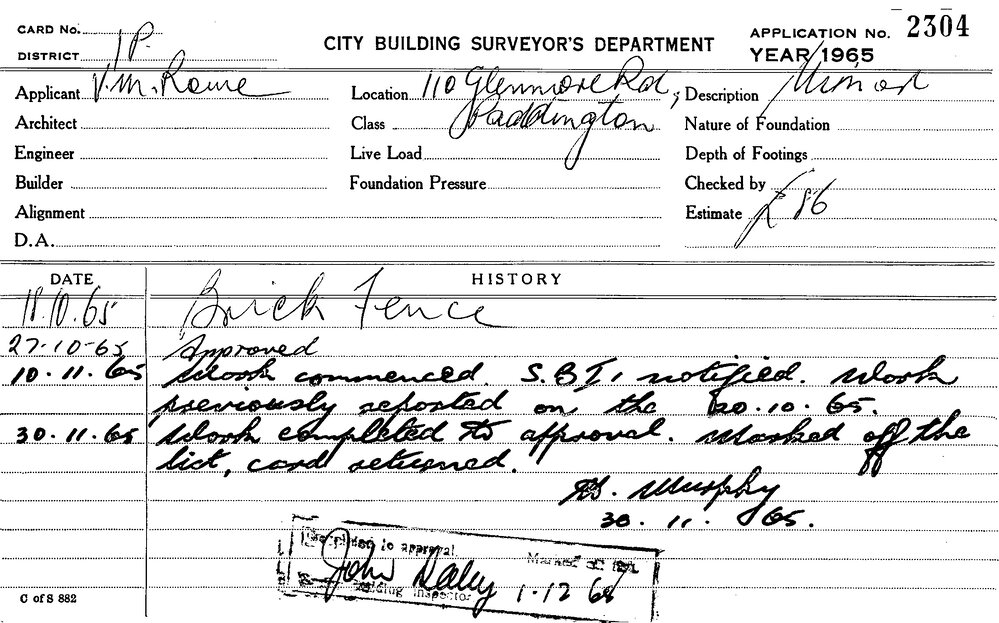 CARD No.
DISTRICT 1P.
CITY BUILDING SURVEYOR'S DEPARTMENT
APPLICATION No. 2304
YEAR 1965
Applicant V. M. Rowe
Location 110 Glenmore Rd,
Description Minor
Architect
Class Paddington
Nature of Foundation
Engineer
Live Load
Depth of Footings
Builder
Foundation Pressure
Checked by
Alignment
Estimate £ 86
D.A.
DATE HISTORY
18.10.65 Brick Fence
27-10-65 Approved
10.11.65 Work commenced. S.B.I. notified. Work
previously reported on the 20.10.65.
30.11.65 Work completed to approval. Marked off the
list, card returned.
Murphy
30.11.65.
Completed to approval. Marked off list
John Daley 1.12.65
Building Inspector
C of S 882